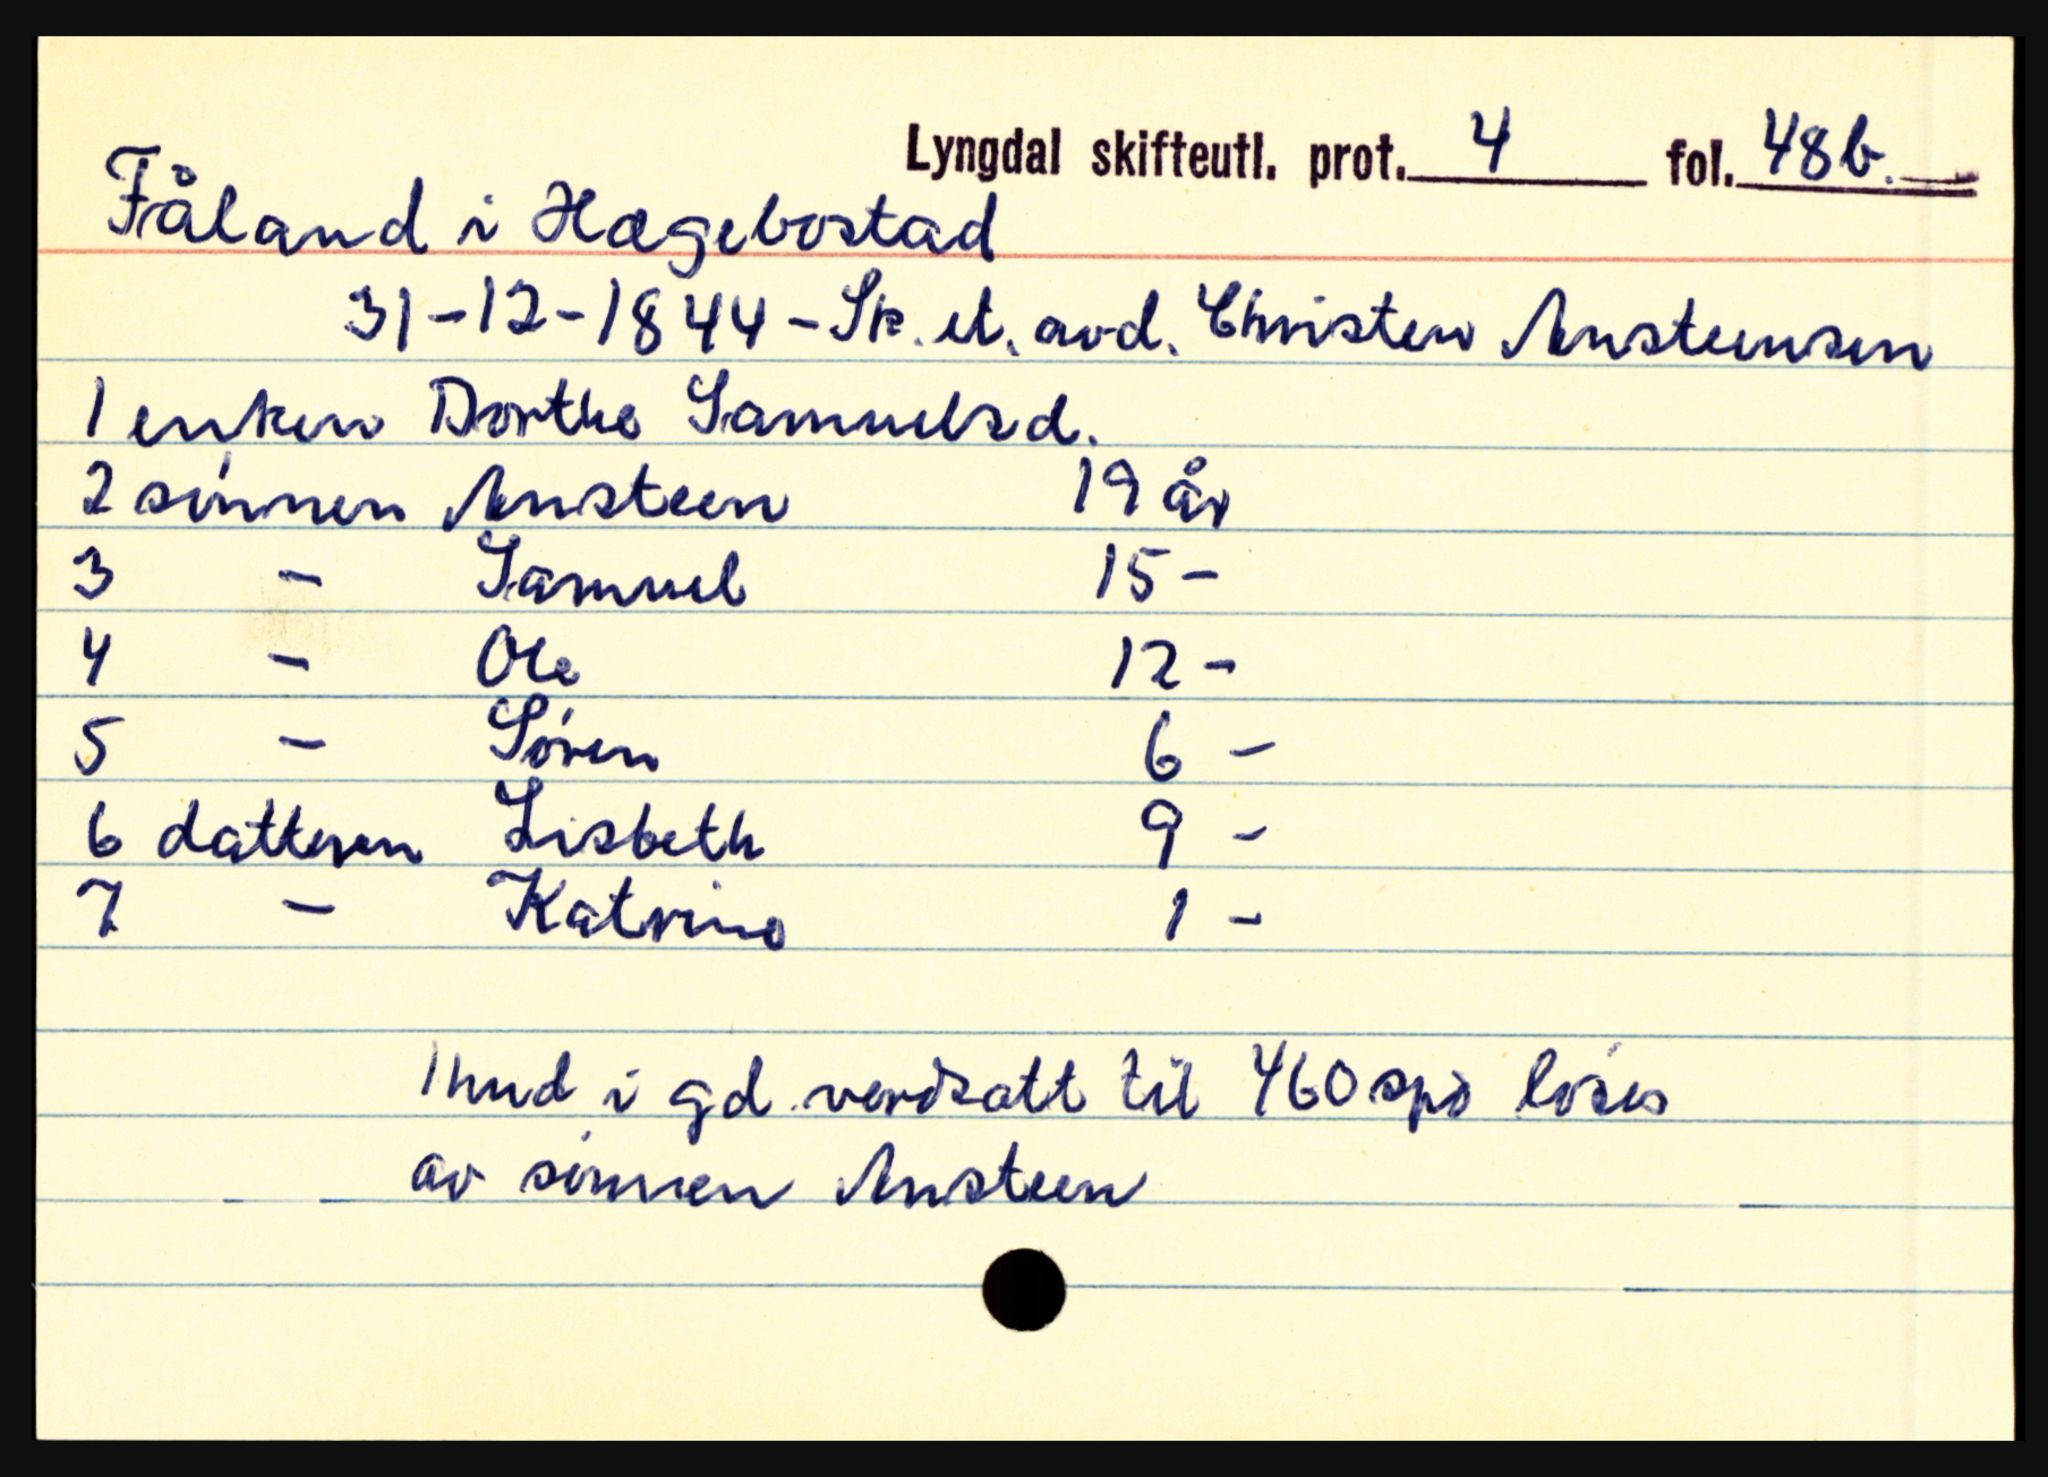 Lyngdal skifteutl. prot. 4 fol. 48b.
Fåland i Hægebostad
31-12-1844 - Sk. et. avd. Christen Ansteensen
1 enken Dorthe Samuelsd.
2 sønnen Ansteen 19 år
3 - Samuel 15 -
4 - Ole 12 -
5 - Søren 6 -
6 datteren Lisbeth 9 -
7 - Katrine 1 -
1 hud i gd. verdsatt til 460 spd løses
av sønnen Ansteen